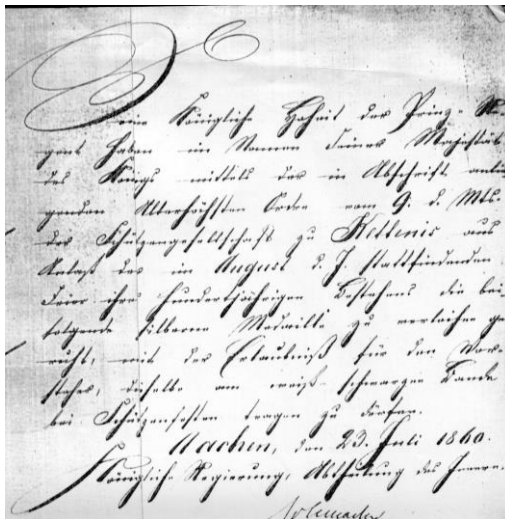 Seine Königliche Hoheit der Prinz-Re-
gent haben im Namen Seiner Majestät
des Königs mittels der in Abschrift anlie-
genden Allerhöchsten Ordre vom 9. d. Mts.
der Schützengesellschaft zu Kettenis aus
Anlaß der im August d. J. stattfindenden
Feier ihres hundertjährigen Bestehens die bei-
folgende silberne Medaille zu verleihen ge-
ruht, mit der Erlaubniß für den Vor-
steher, dieselbe am weiß-schwarzen Bande
bei Schützenfesten tragen zu dürfen.
Aachen, den 23. Juli 1860.
Königliche Regierung, Abtheilung des Innern.